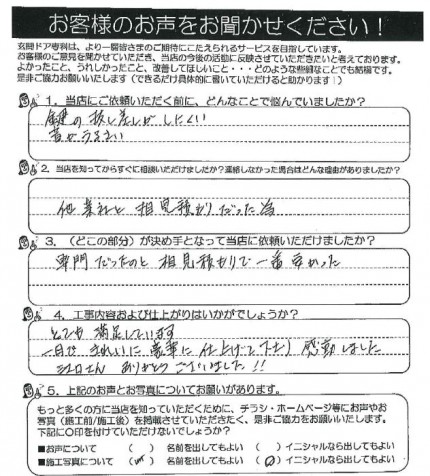 お客様のお声をお聞かせください！
玄関ドア専科は、より一層皆さまのご期待にこたえられるサービスを目指しています。
お客様のご意見を聞かせていただき、当店の今後の活動に反映させていただきたいと考えております。
よかったこと、うれしかったこと、改善してほしいこと・・・どのような些細なことでも結構です。
是非ご協力お願いいたします（できるだけ具体的に書いていただけると助かります！）
1．当店にご依頼いただく前に、どんなことで悩んでいましたか？
鍵の抜き差しがしにくい
音がうるさい
2．当店を知ってからすぐに相談いただけましたか？連絡しなかった場合はどんな理由がありましたか？
他業社と相見積もりだった為
3．（どこの部分）が決め手となって当店に依頼いただけましたか？
専門だったのと相見積もりで一番安かった
4．工事内容および仕上がりはいかがでしょうか？
とても満足しています
一日できれいに豪華に仕上げて下さり感動しました
さん ありがとうございました!!
5．上記のお声とお写真についてお願いがあります。
もっと多くの方に当店を知っていただくために、チラシ・ホームページ等にお声やお
写真（施工前/施工後）を掲載させていただきたく、是非ご協力をお願いいたします。
下記に〇印を付けていただけないでしょうか？
■お声について （ ） 名前を出してもよい （ ） イニシャルなら出してもよい
■施工写真について （ ） 名前を出してもよい （○） イニシャルなら出してもよい